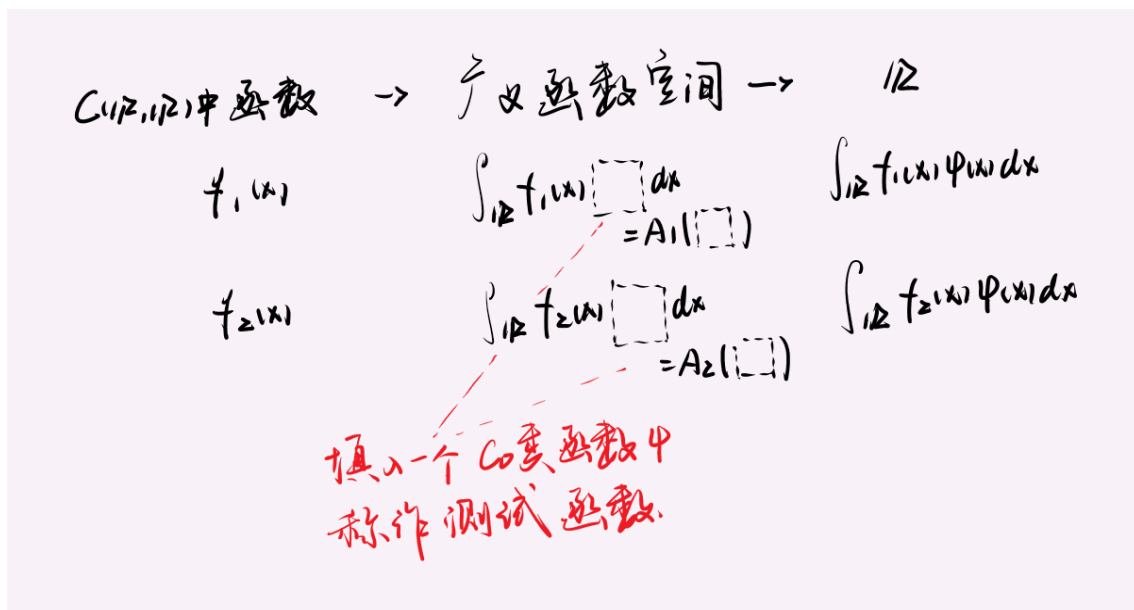 C(ℝ,ℝ)中函数 → 广义函数空间 → ℝ
f₁(x) ∫_ℝ f₁(x) □ dx ∫_ℝ f₁(x)φ(x)dx
=A₁(□)
f₂(x) ∫_ℝ f₂(x) □ dx ∫_ℝ f₂(x)φ(x)dx
=A₂(□)
填入一个C₀类函数φ
称作测试函数.